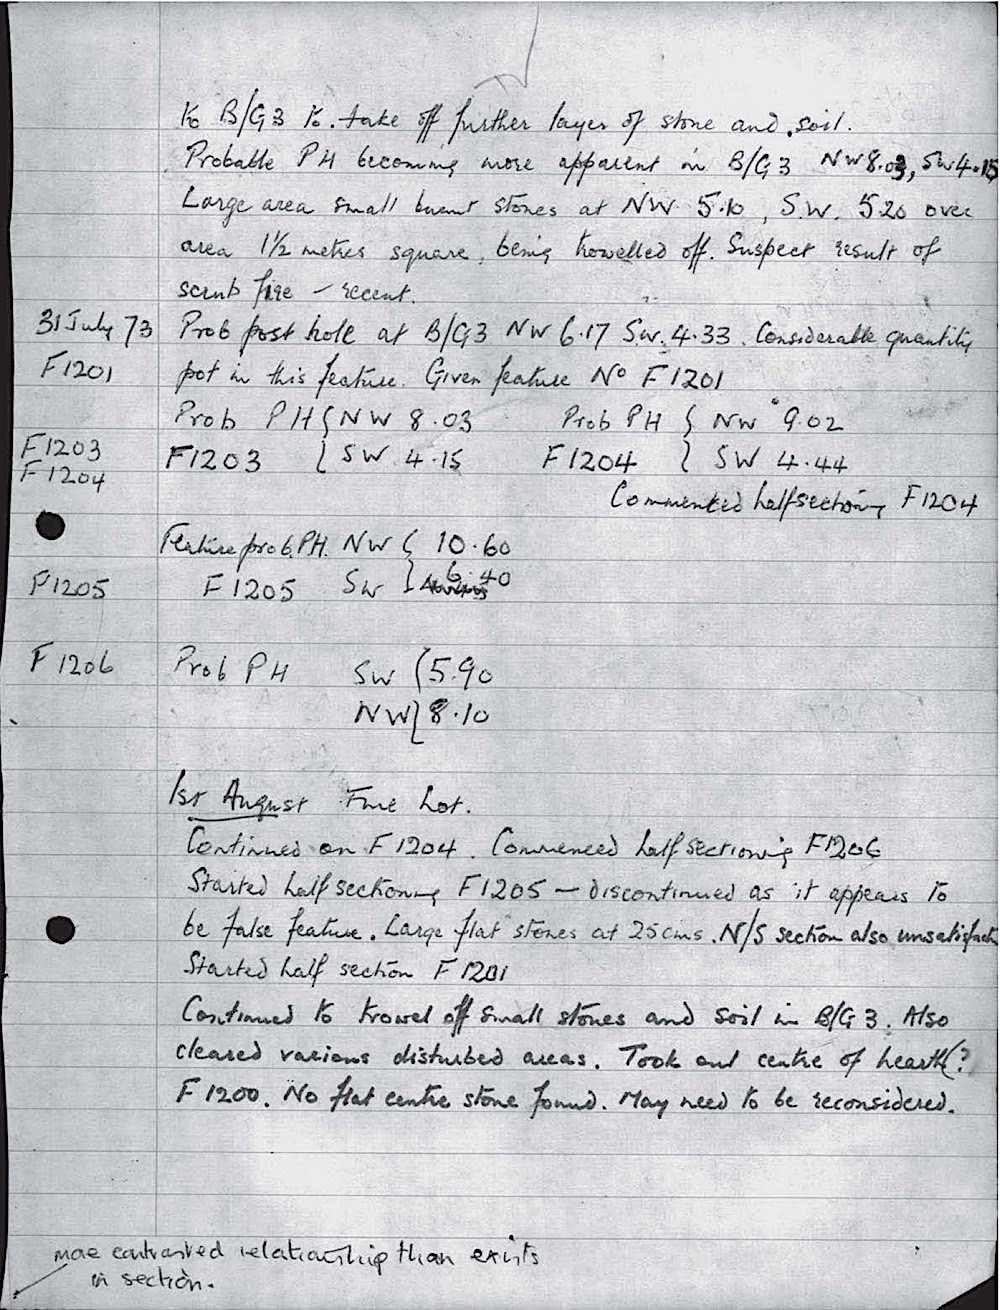 to B/G3 to take off further layer of stone and soil.
Probable PH becoming more apparent in B/G3 NW 8.03, SW 4.15
Large area small burnt stones at NW 5.10, S.W. 5.20 over
area 1½ metres square, being trowelled off. Suspect result of
scrub fire – recent.
31 July 73 Prob post hole at B/G3 NW 6.17 SW. 4.33. Considerable quantity
F1201 pot in this feature. Given feature No F1201
Prob PH { NW 8.03 Prob PH { NW 9.02
F1203 F1203 { SW 4.15 F1204 { SW 4.44
F1204
Commented halfsectioning F1204
Feature prob. PH. NW { 10.60
F1205 F1205 SW } 6.40
F1206 Prob PH SW { 5.90
NW } 8.10
1st August Fine hot.
Continued on F1204. Commenced half sectioning F1206
Started half sectioning F1205 – discontinued as it appears to
be false feature. Large flat stones at 25cms. N/S section also
Started half section F1201
Continued to trowel off small stones and soil in B/G3. Also
cleared various disturbed areas. Took out centre of hearth(?
F1200. No flat centre stone found. May need to be reconsidered.
more relationship than exists
in section.